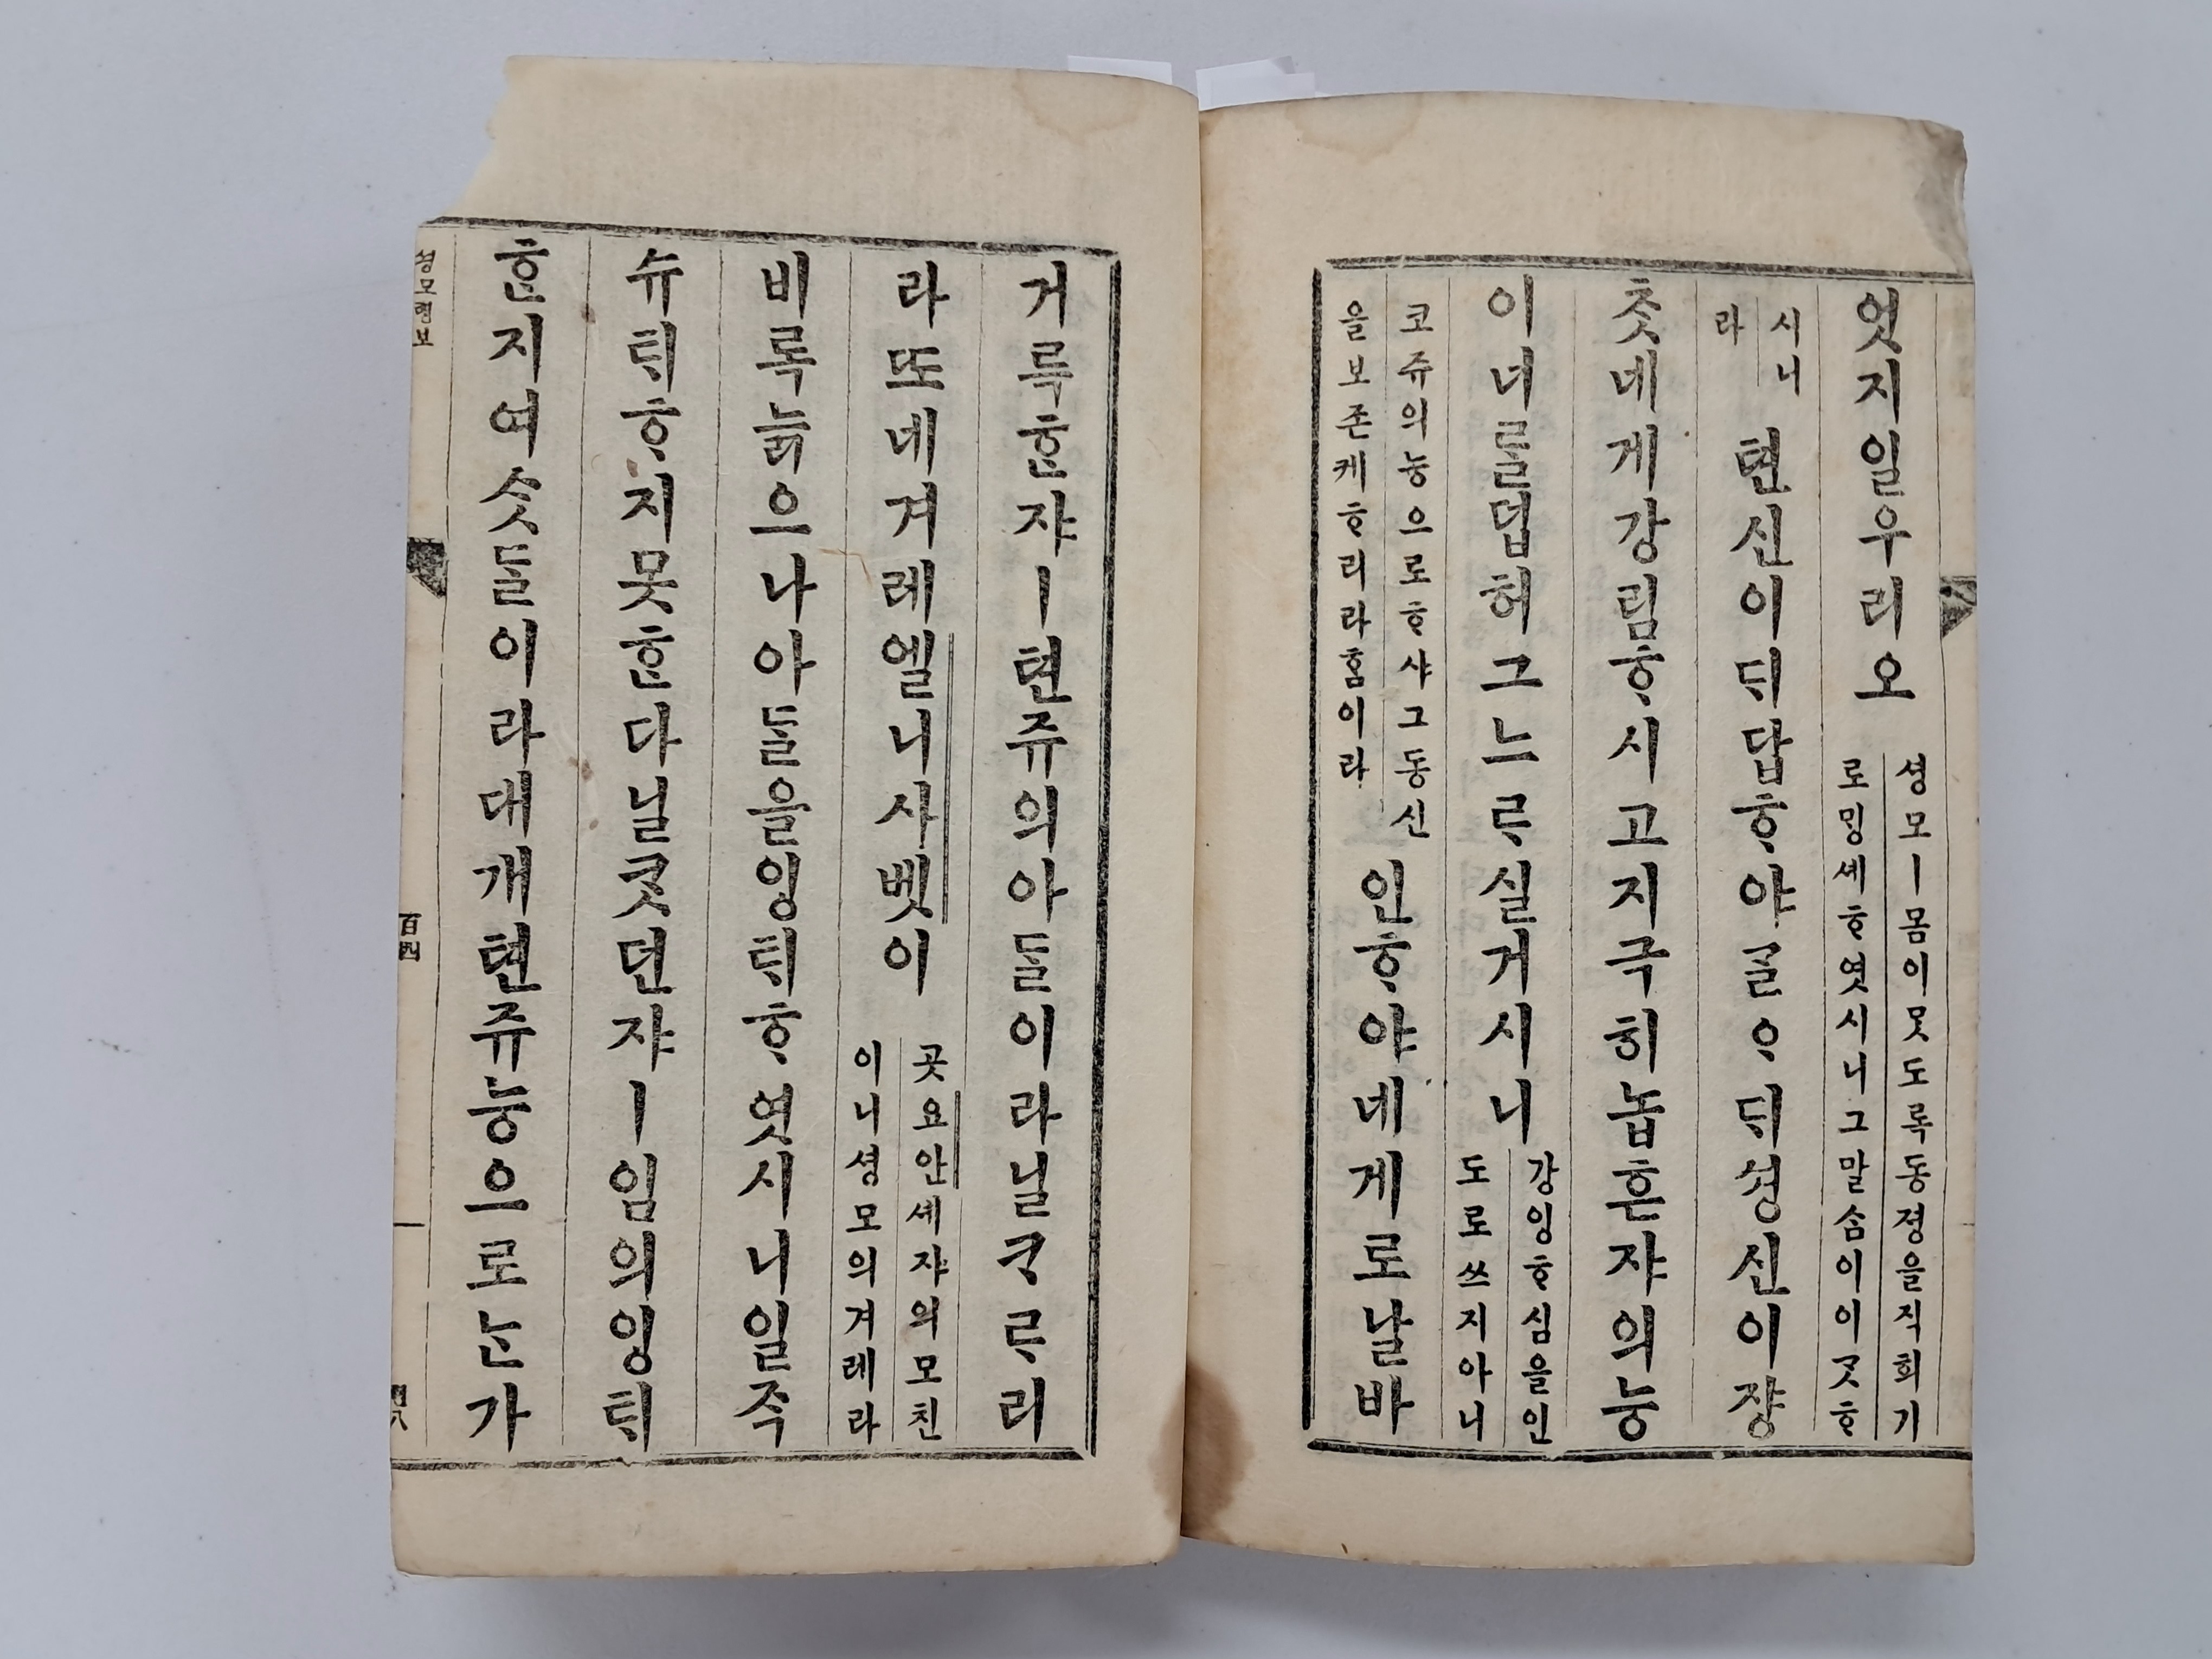 엇지일우리오
셩모ㅣ몸이못도록동졍을직희기
로밍셰ᄒᆞ엿시니그말ᄉᆞᆷ이이ᄀᆞᆺᄒᆞ
시니
라
텬신이ᄃᆡ답ᄒᆞ야ᄀᆞᆯᄋᆞᄃᆡ셩신이쟝
ᄎᆞᆺ네게강림ᄒᆞ시고지극히놉흔쟈의능
이너를덥허그느ᄅᆞ실거시니
강잉ᄒᆞ심을인
도로쓰지아니
코쥬의능으로ᄒᆞ샤그동신
을보존케ᄒᆞ리라ᄒᆞᆷ이라
인ᄒᆞ야네게로날바
거륵ᄒᆞᆫ쟈ㅣ텬쥬의아들이라닐ᄏᆞᄅᆞ리
라또네겨레엘니사벳이
곳요안셰쟈의모친
이니셩모의겨레라
비록늙으나아들을잉ᄐᆡᄒᆞ엿시니일즉
슈ᄐᆡᄒᆞ지못ᄒᆞᆫ다닐ᄏᆞᆺ던쟈ㅣ임의잉ᄐᆡ
ᄒᆞᆫ지여ᄉᆞᆺ들이라대개텬쥬능으로ᄂᆞᆫ가
셩모령보
百四